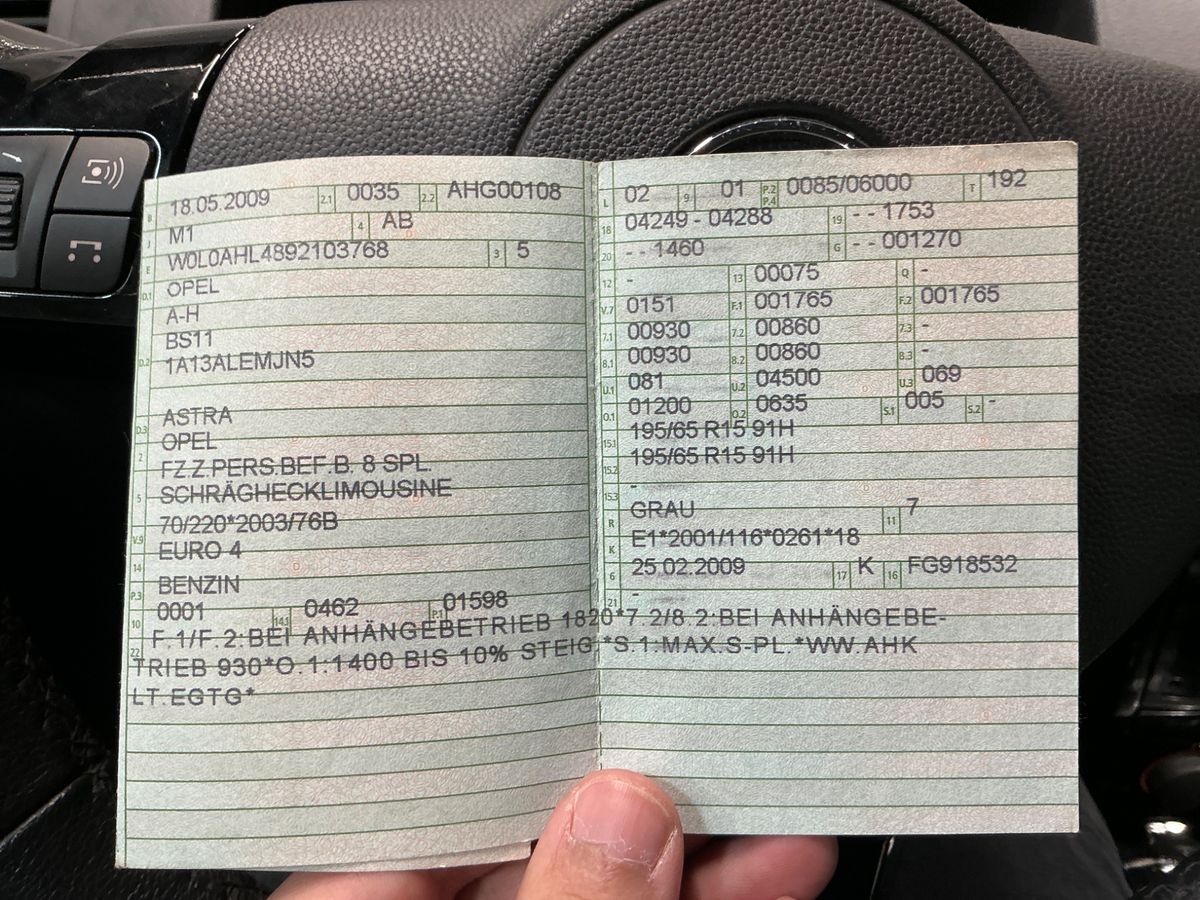 B 18.05.2009 2.1 0035 2.2 AHG00108
J M1 4 AB
E W0L0AHL4892103768 3 5
D.1 OPEL
A-H
BS11
D.2 1A13ALEMJN5
D.3 ASTRA
2 OPEL
FZ.Z.PERS.BEF.B. 8 SPL.
5 SCHRÄGHECKLIMOUSINE
V.9 70/220*2003/76B
14 EURO 4
P.3 BENZIN
10 0001 14.1 0462 P.1 01598
L 02 9 01 P.2 P.4 0085/06000 T 192
18 04249 - 04288 19 - - 1753
20 - - 1460 G - - 001270
12 - 13 00075 Q -
V.7 0151 F.1 001765 F.2 001765
7.1 00930 7.2 00860 7.3 -
8.1 00930 8.2 00860 8.3 -
U.1 081 U.2 04500 U.3 069
O.1 01200 O.2 0635 S.1 005 S.2 -
15.1 195/65 R15 91H
15.2 195/65 R15 91H
15.3 -
R GRAU 11 7
K E1*2001/116*0261*18
6 25.02.2009 17 K 16 FG918532
21 -
22 F.1/F.2:BEI ANHÄNGEBETRIEB 1820*7.2/8.2:BEI ANHÄNGEBE-
TRIEB 930*O.1:1400 BIS 10% STEIG.*S.1:MAX.S-PL.*WW.AHK
LT.EGTG*